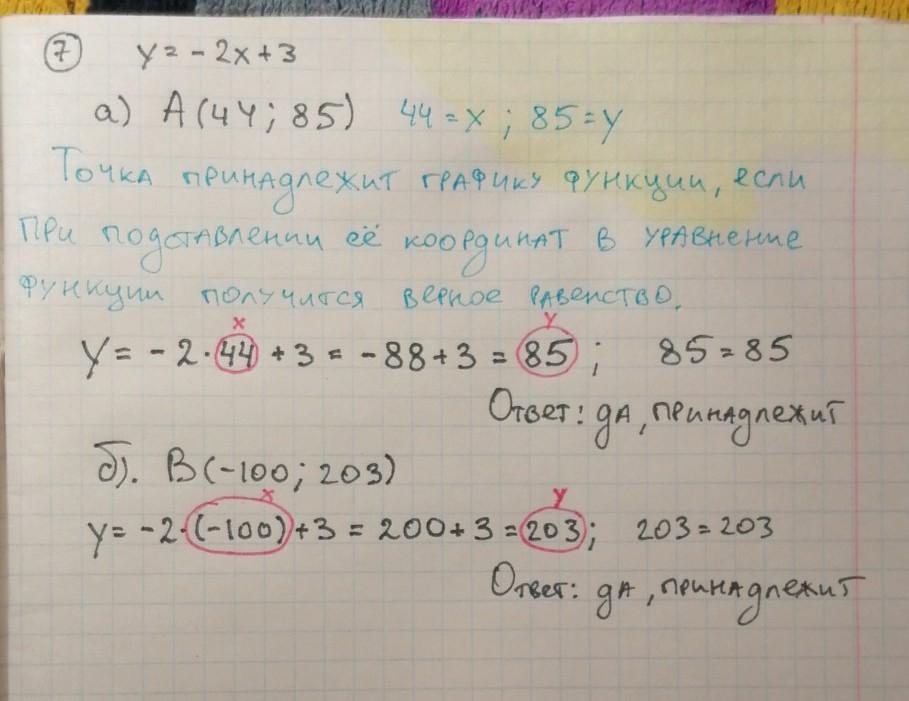 7 y = - 2x + 3
а) А(44; 85) 44 = x ; 85 = y
Точка принадлежит графику функции, если
при подставлении её координат в уравнение
функции получится верное равенство.
x y
y = - 2 · 44 + 3 = - 88 + 3 = 85 ; 85 = 85
Ответ: да, принадлежит
б). В(-100; 203)
x y
y = - 2 · (-100) + 3 = 200 + 3 = 203 ; 203 = 203
Ответ: да, принадлежит